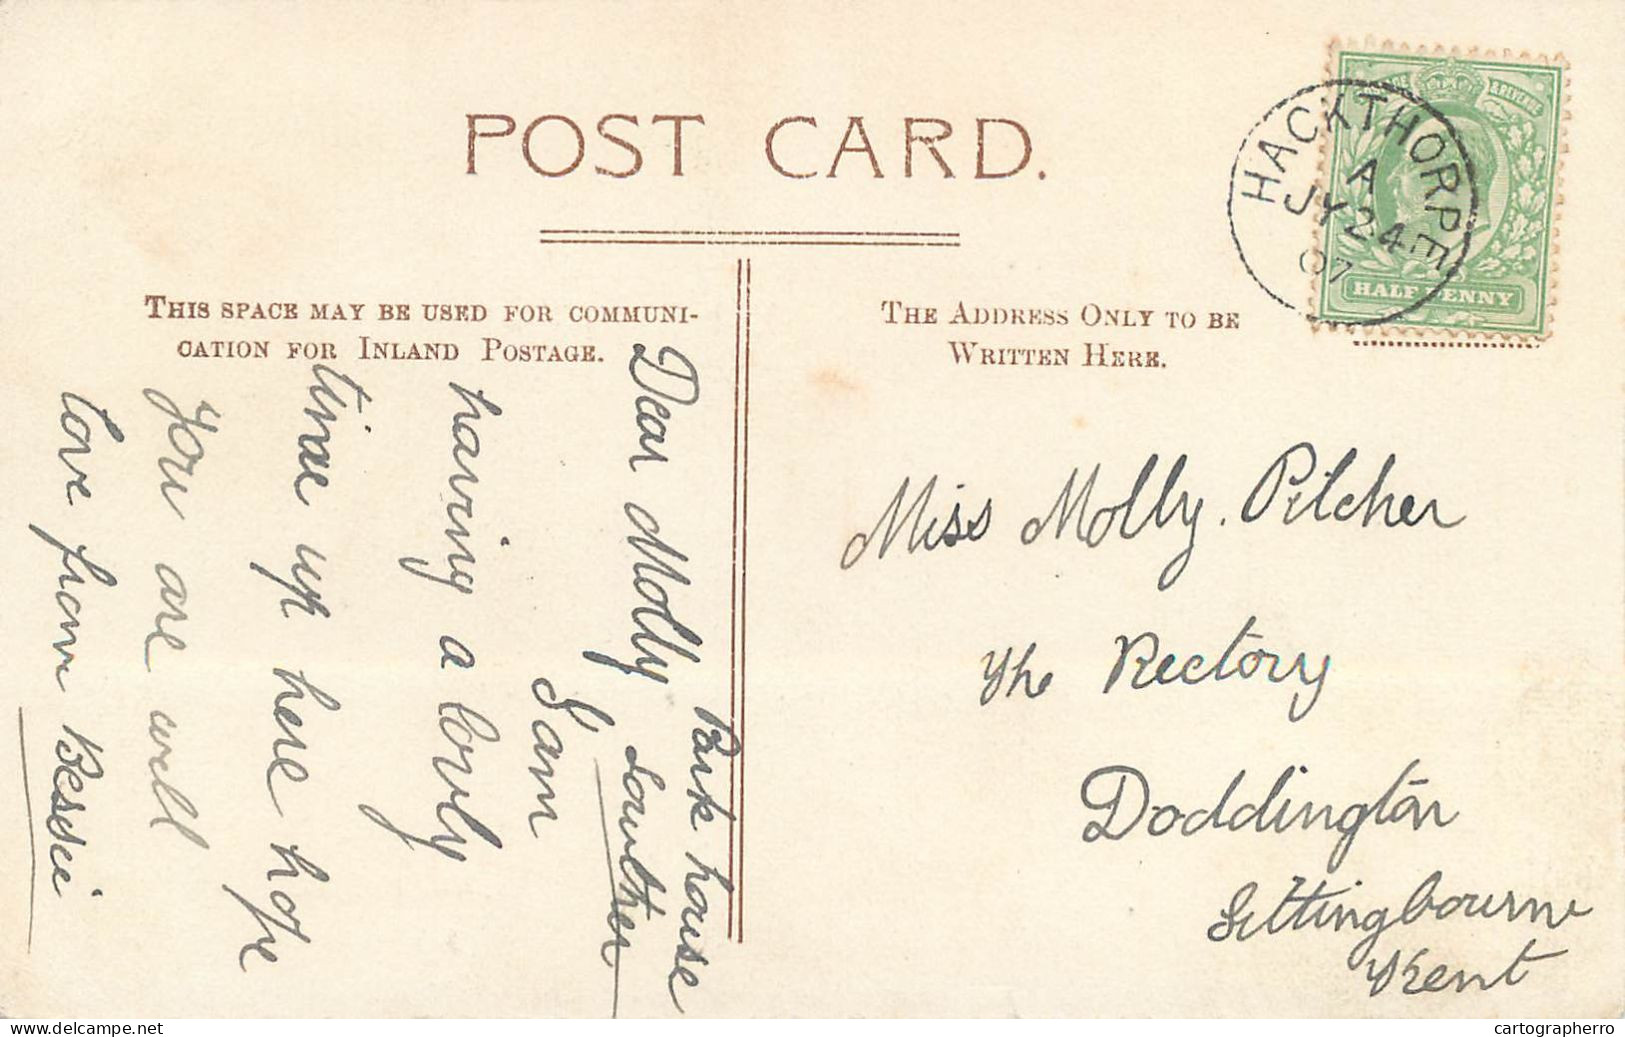 POST CARD.
THIS SPACE MAY BE USED FOR COMMUNI-
CATION FOR INLAND POSTAGE.
THE ADDRESS ONLY TO BE
WRITTEN HERE.
HACKTHORPE
A
JY 24
07
& REVENUE
HALF PENNY
Park house
Lowther
Dear Molly
I am
having a lovly
time up here hope
you are well
love from Bessie
Miss Molly. Pilcher
The Rectory
Doddington
Sittingbourne
Kent
www.delcampe.net
cartographerro